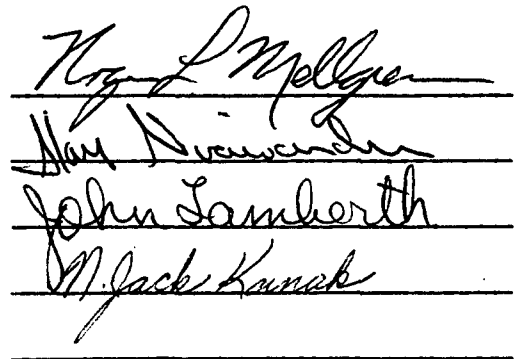 Roger L Mellgren
Alan Nicewander
John Lamberth
N. Jack Kanak